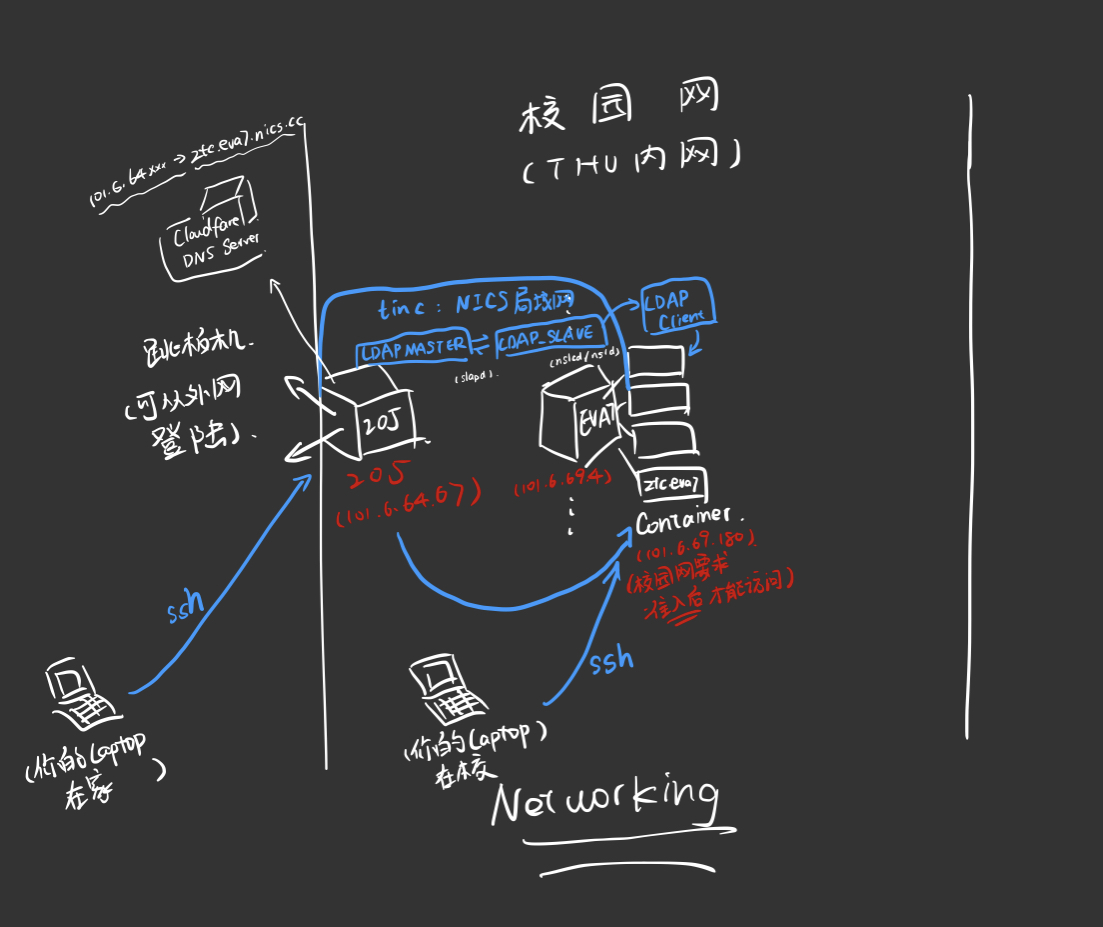 校园网
(THU内网)
101.6.64.xxx → ztc.eva7.nics.cc
Cloudfare
DNS Server
tinc : NICS局域网
LDAP MASTER
LDAP_SLAVE
LDAP
Client
(slapd).
(nslcd/nslcd)
跳板机.
(可从外网
登陆).
205
EVA7
205
(101.6.64.67)
(101.6.69.4)
ztc.eva7
Container.
(101.6.69.180)
(校园网要求
准入后才能访问)
ssh
ssh
(你的Laptop
在家)
(你的Laptop)
在本校
Networking